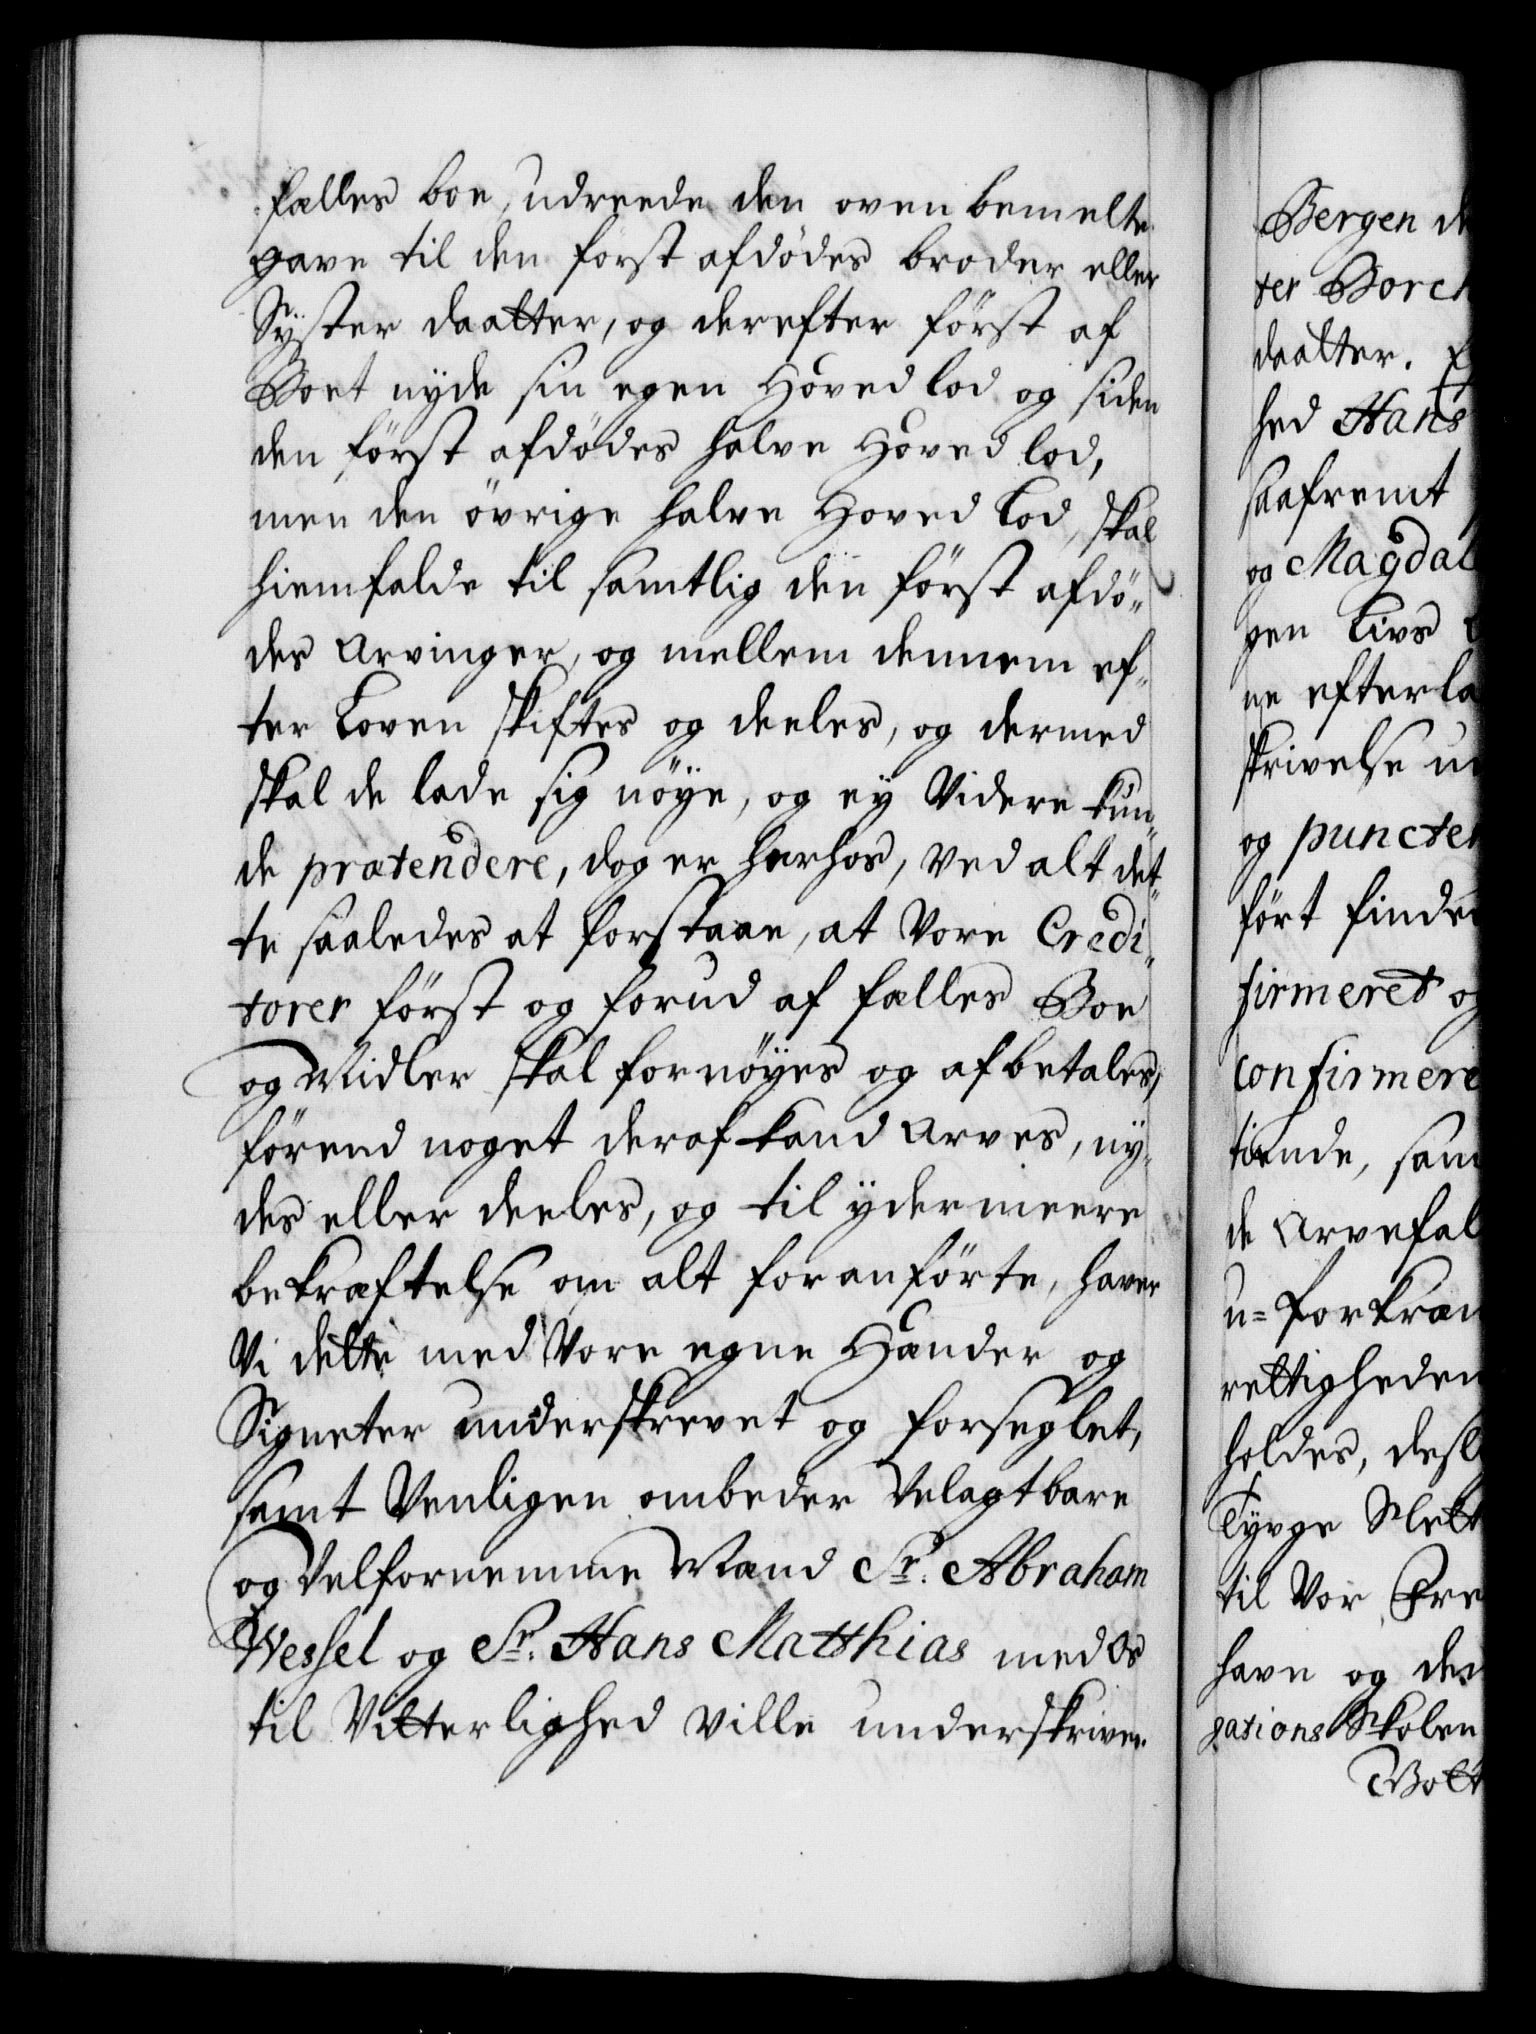 fælles boe, udreede den ovenbemelte
gave til den först afdödes broder eller
Syster daatter, og derefter först af
Boet nyde sin egen Hoved lod og siden
den först afdödes halve Hoved lod,
men den övrige halve Hoved Lod, skal
hiemfalde til samtlig den först afdö„
des Arvinger, og mellem dennem ef„
ter Loven skiftes og deeles, og dermed
skal de lade sig nöye, og ey Videre kun„
de prætendere, dog er herhos, ved alt det„
te saaledes at forstaae, at Vore Credi„
torer först og forud af fælles Boe
og Midler skal fornöyes og afbetales,
förend noget deraf kand Arves, ny„
des eller deeles, og til ydermeere
bekræftelse om alt foranförte, haver
Vi dette med Vore egne Hænder og
Signeter underskrevet og forseglet,
samt Venligen ombeder Velagtbare
og Velfornemme Mænd Sr. Abraham
Wessel og Sr. Hans Matthias med Os
til Vitterlighed ville underskrive.
Bergen de
ter Borch
daatter. E
hed Hans
saafremt
og Magdal
gen Livs
ne efterla
skrivelse u
og puncter
fört finde
firmeret og
confirmere
tiende, sam
de Arvefal
u= forkræn
rettigheden
holdes, desl
Tyvge Slett
til Vor Fre
havn og den
gations Skolen
Bolt